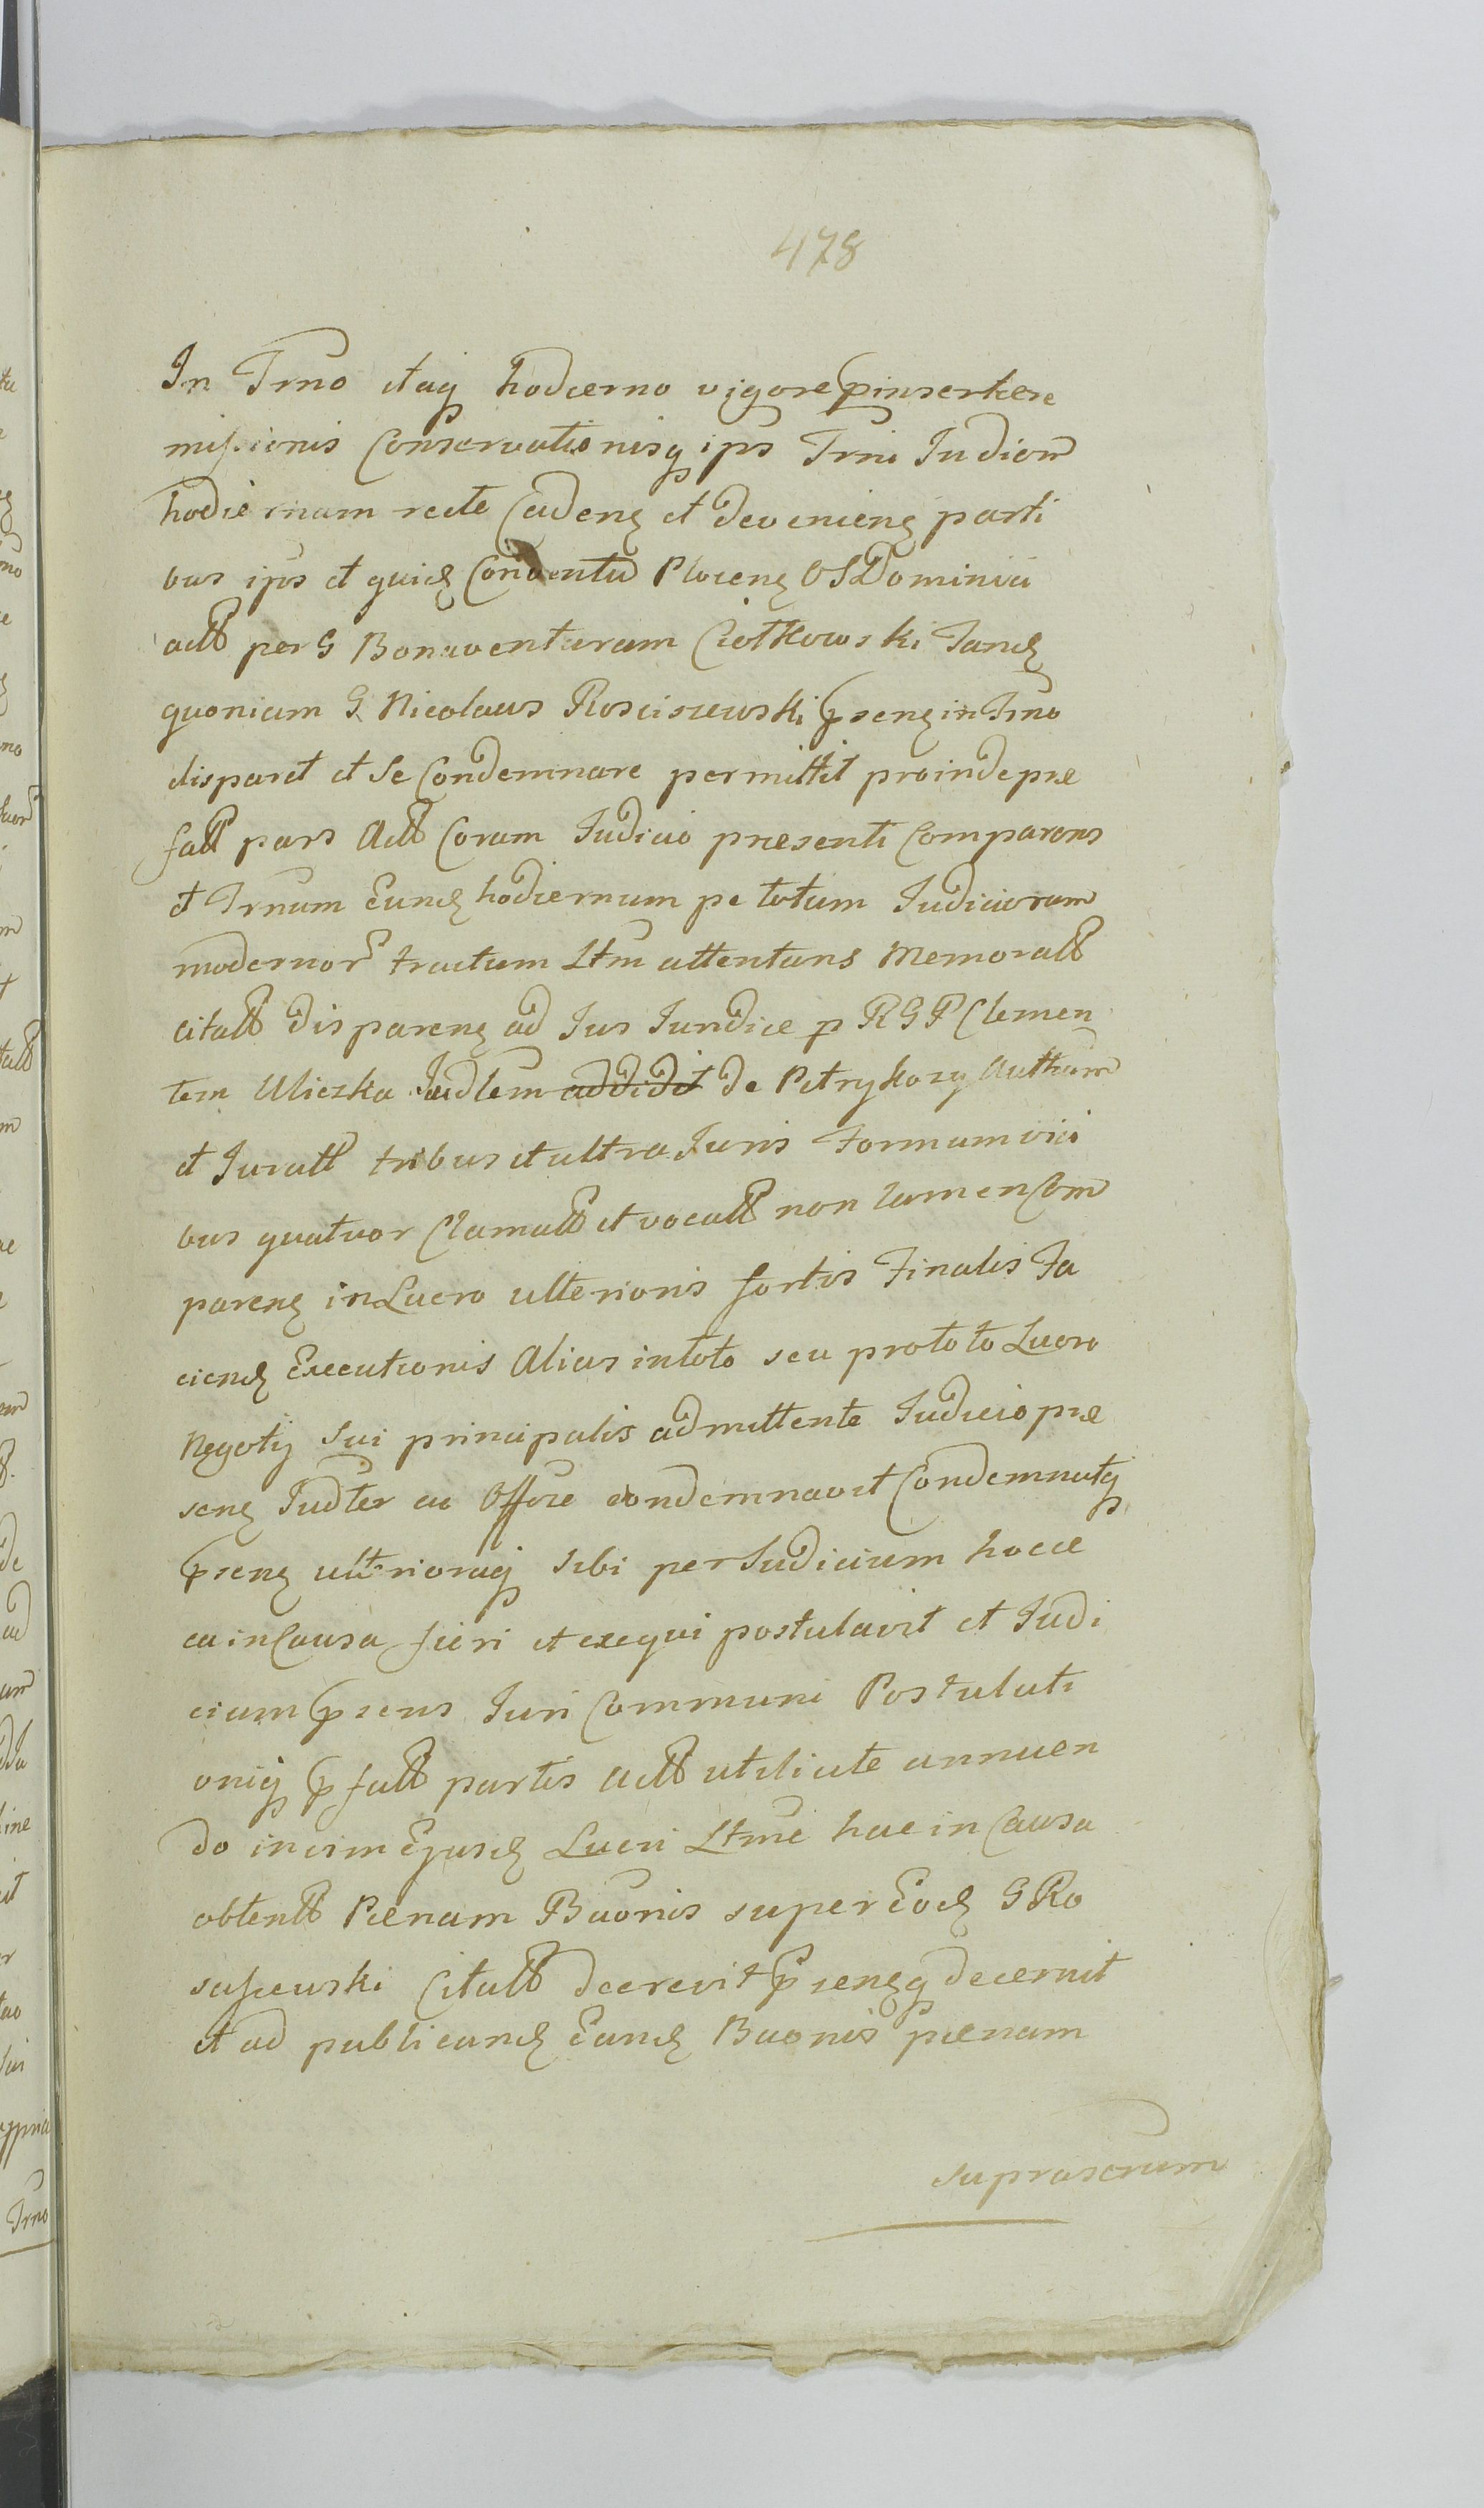 478
In Trno itaq hodierno vigore pinsertere
missionis Conservationisq ips Trni Iudiom
hodiernam recte Cadenz et devenienz parti
bus ipis et quid Conventu Plocenz OSDominici
actt per G Bonaventuram Ciołkowski Tand
quoniam G Nicolaus Rosciszewski psenz in Trno
disparet et se Condemnare permittit proinde præ
fatt pars Actt Coram Iudicio præsenti Comparens
et Trnum Eund hodiernum pe totum Iudiciorum
modernor tractum Ltm attentans Memoratt
citatt disparenz ad Ius Iuridice p RGP Clemen
tem Uliczka Iudlem addidit de Petrykozy Authum
et Iuratt tribus et ultra Iuris Formam vici
bus quatuor Clamatt et vocatt non tamen Com
parenz in Lucro ulterioris fortis Finalis Fa
ciend Executionis Alias in toto seu pro toto Lucro
Negotij Sui principalis admittente Iudicio præ
senz Iudter ex Offore condemnavit Condemnatq
psenz ulterioraq sibi per Iudicium hocce
ea in Causa fieri et exequi postulavit et Iudi
cium psens Iuri Communi Postulati
oniq pfatt partis actt utiliate annuen
do in vim Ejusd Lucri Ltme hac in Causa
obtentt Pænam Baonis super Eod G Ro
sciszewski Citatt decrevit psenzq decernit
et ad publicand Eand Baonis pænam
suprascrum